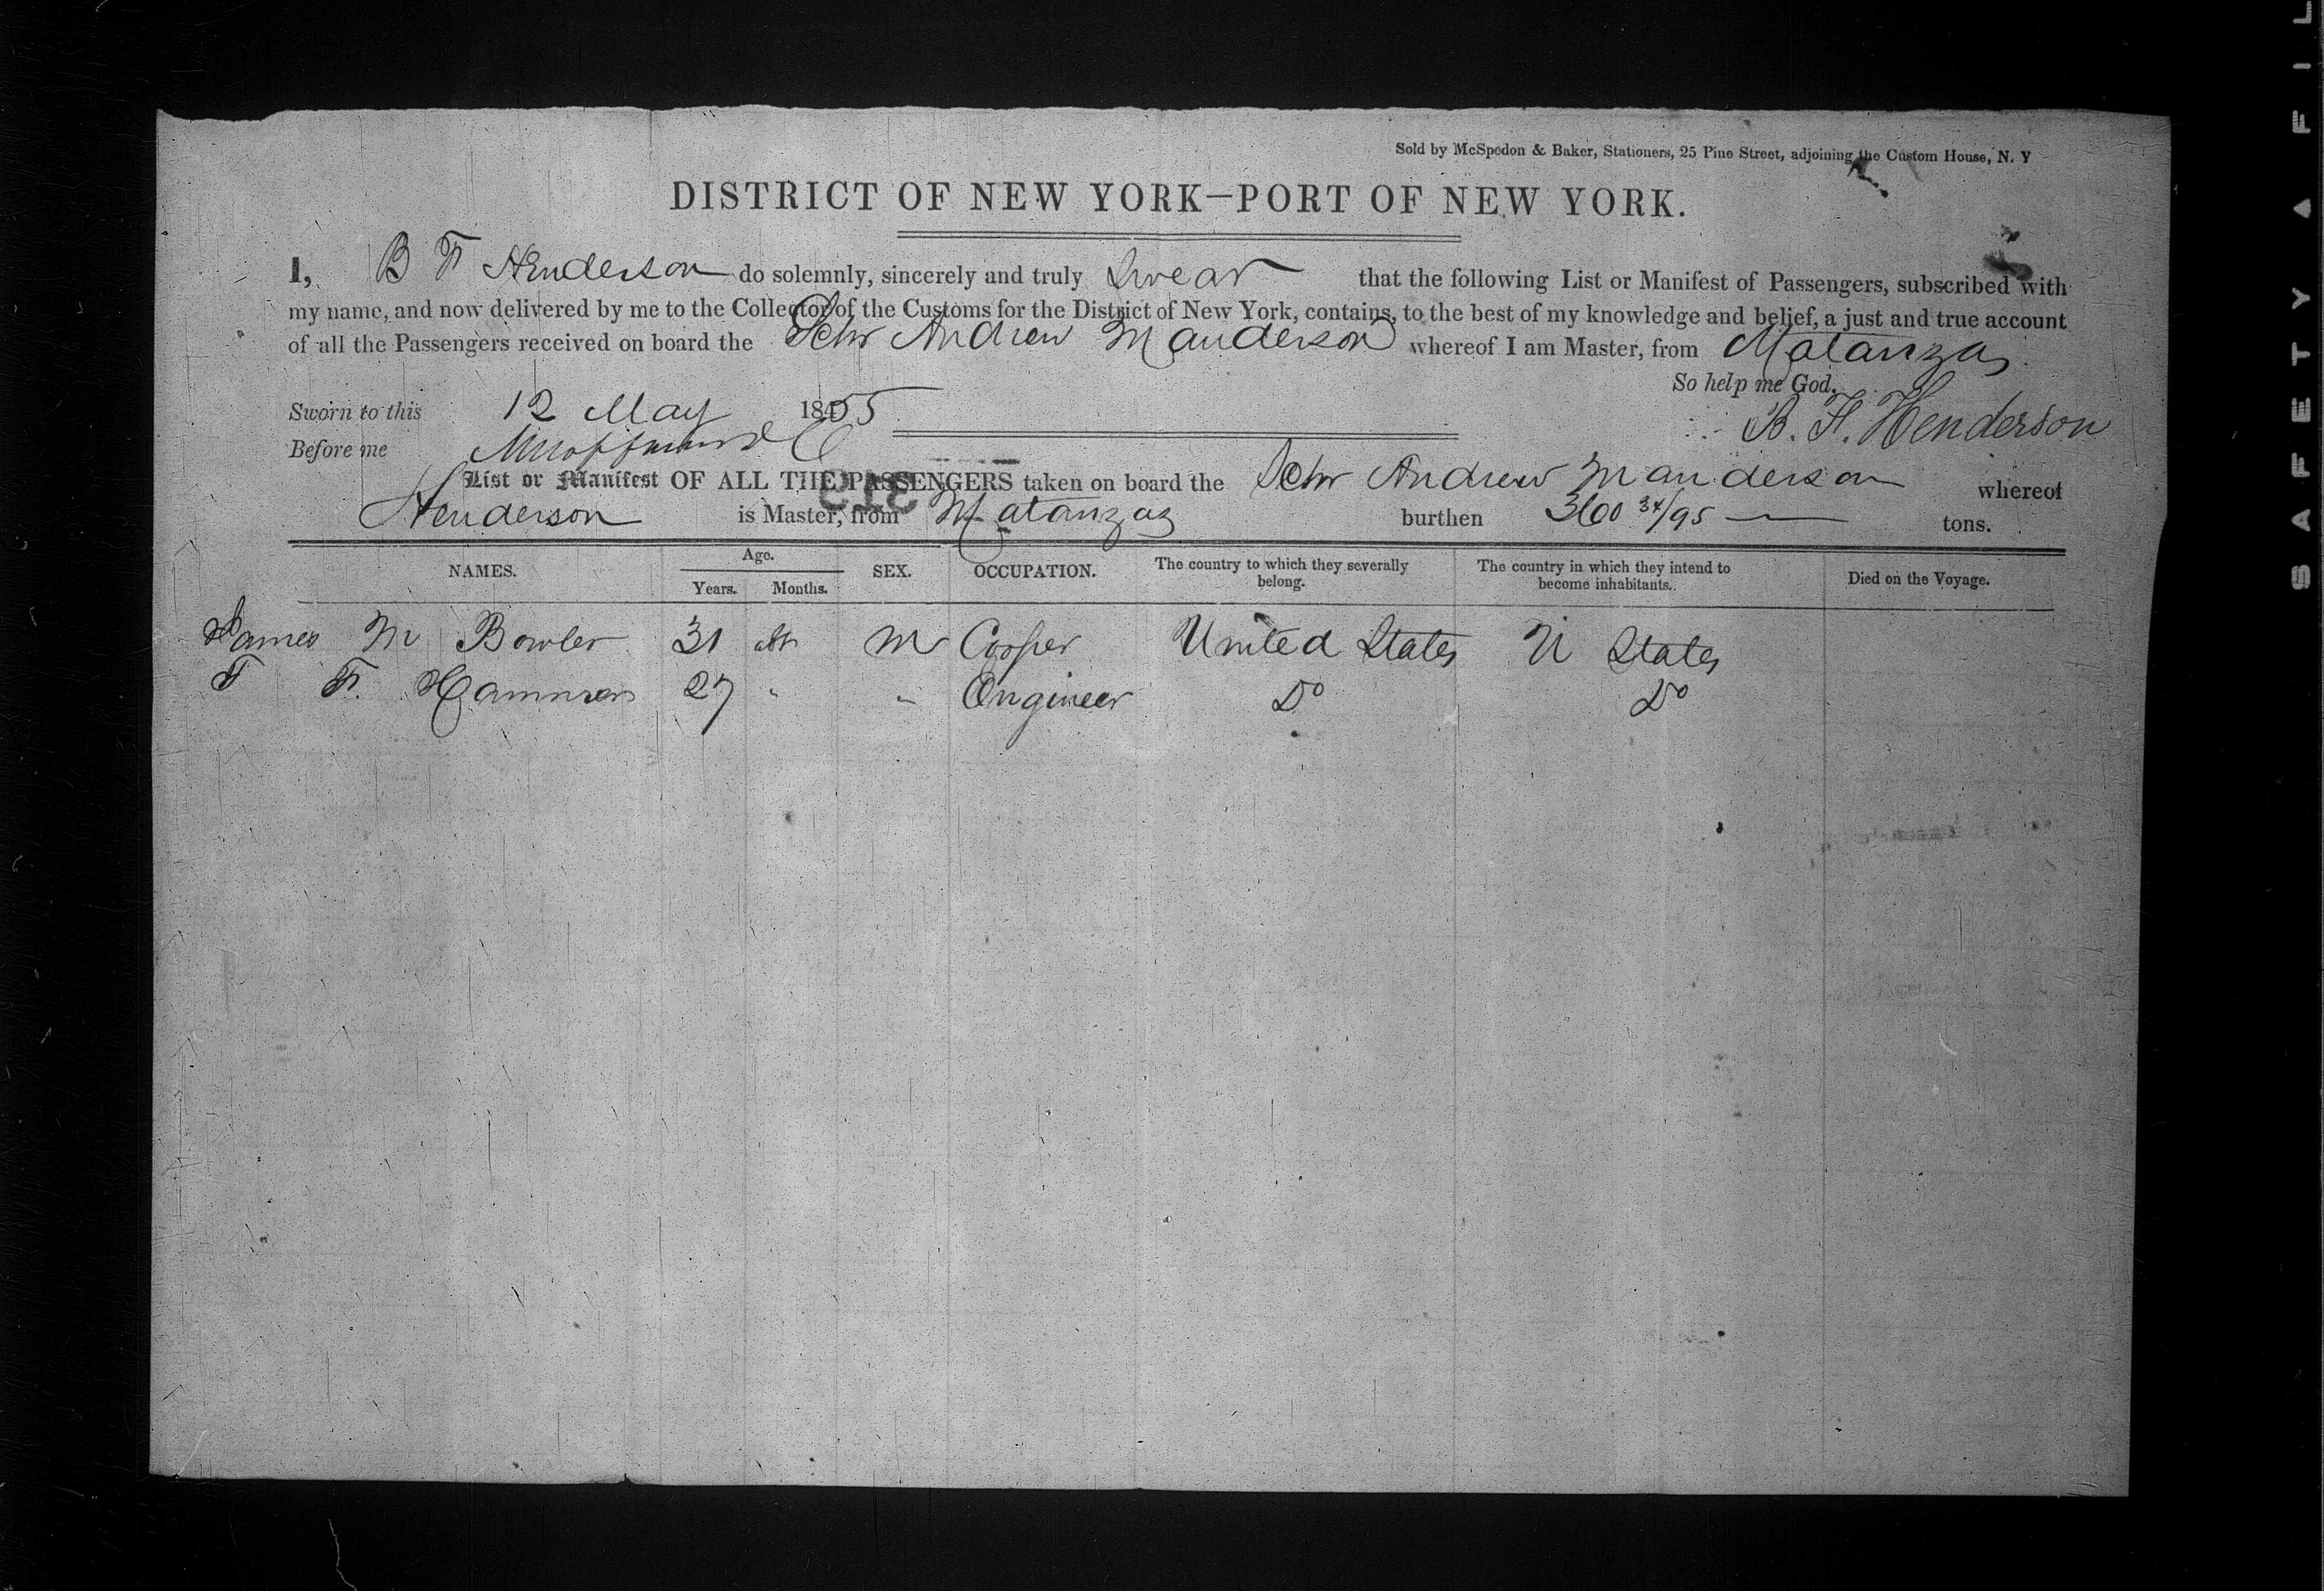 Sold by McSpedon & Baker, Stationers, 25 Pine Street, adjoining the Custom House, N. Y
DISTRICT OF NEW YORK—PORT OF NEW YORK.
I, B F Henderson do solemnly, sincerely and truly Swear that the following List or Manifest of Passengers, subscribed with
my name, and now delivered by me to the Collector of the Customs for the District of New York, contains, to the best of my knowledge and belief, a just and true account
of all the Passengers received on board the Schr Andrew Manderson whereof I am Master, from Matanzas
So help me God.
Sworn to this 12 May 1855
B. F. Henderson
Before me
List or Manifest OF ALL THE PASSENGERS taken on board the Schr Andrew Manderson whereof
Henderson is Master, from Matanzas burthen 360 34/95 tons.
NAMES. Age. Years. Months. SEX. OCCUPATION. The country to which they severally belong. The country in which they intend to become inhabitants. Died on the Voyage.
James M Bowler 31 M Cooper United States U States
F. Hammon 27 " " Engineer Do Do
SAFETY FIL